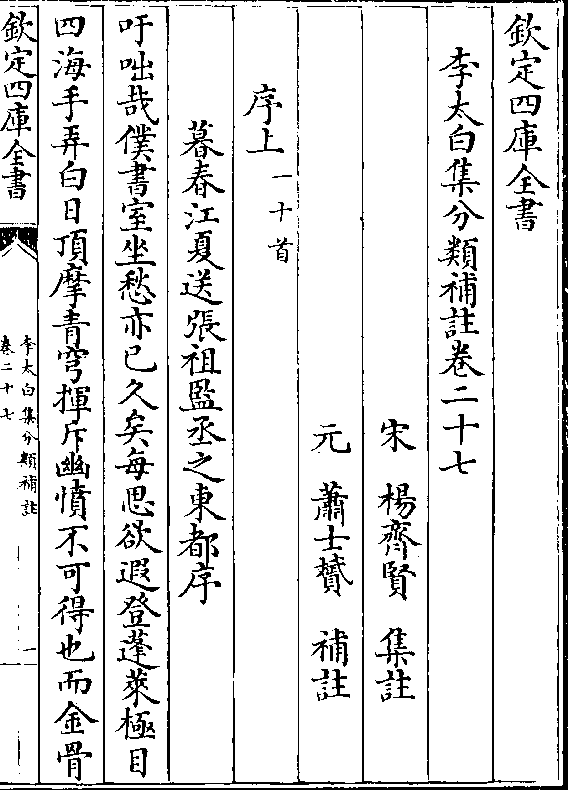 欽定四庫全書
李太白集分類補註卷二十七
宋　楊齊賢　集註
元　蕭士贇　補註
序上一十首
暮春江夏送張祖監丞之東都序
吁咄哉僕書室坐愁亦已久矣每思欲遐登蓬萊極目
四海手弄白日頂摩青穹揮斥幽憤不可得也而金骨
欽定四庫全書
李太白集分類補註
卷二十七
一